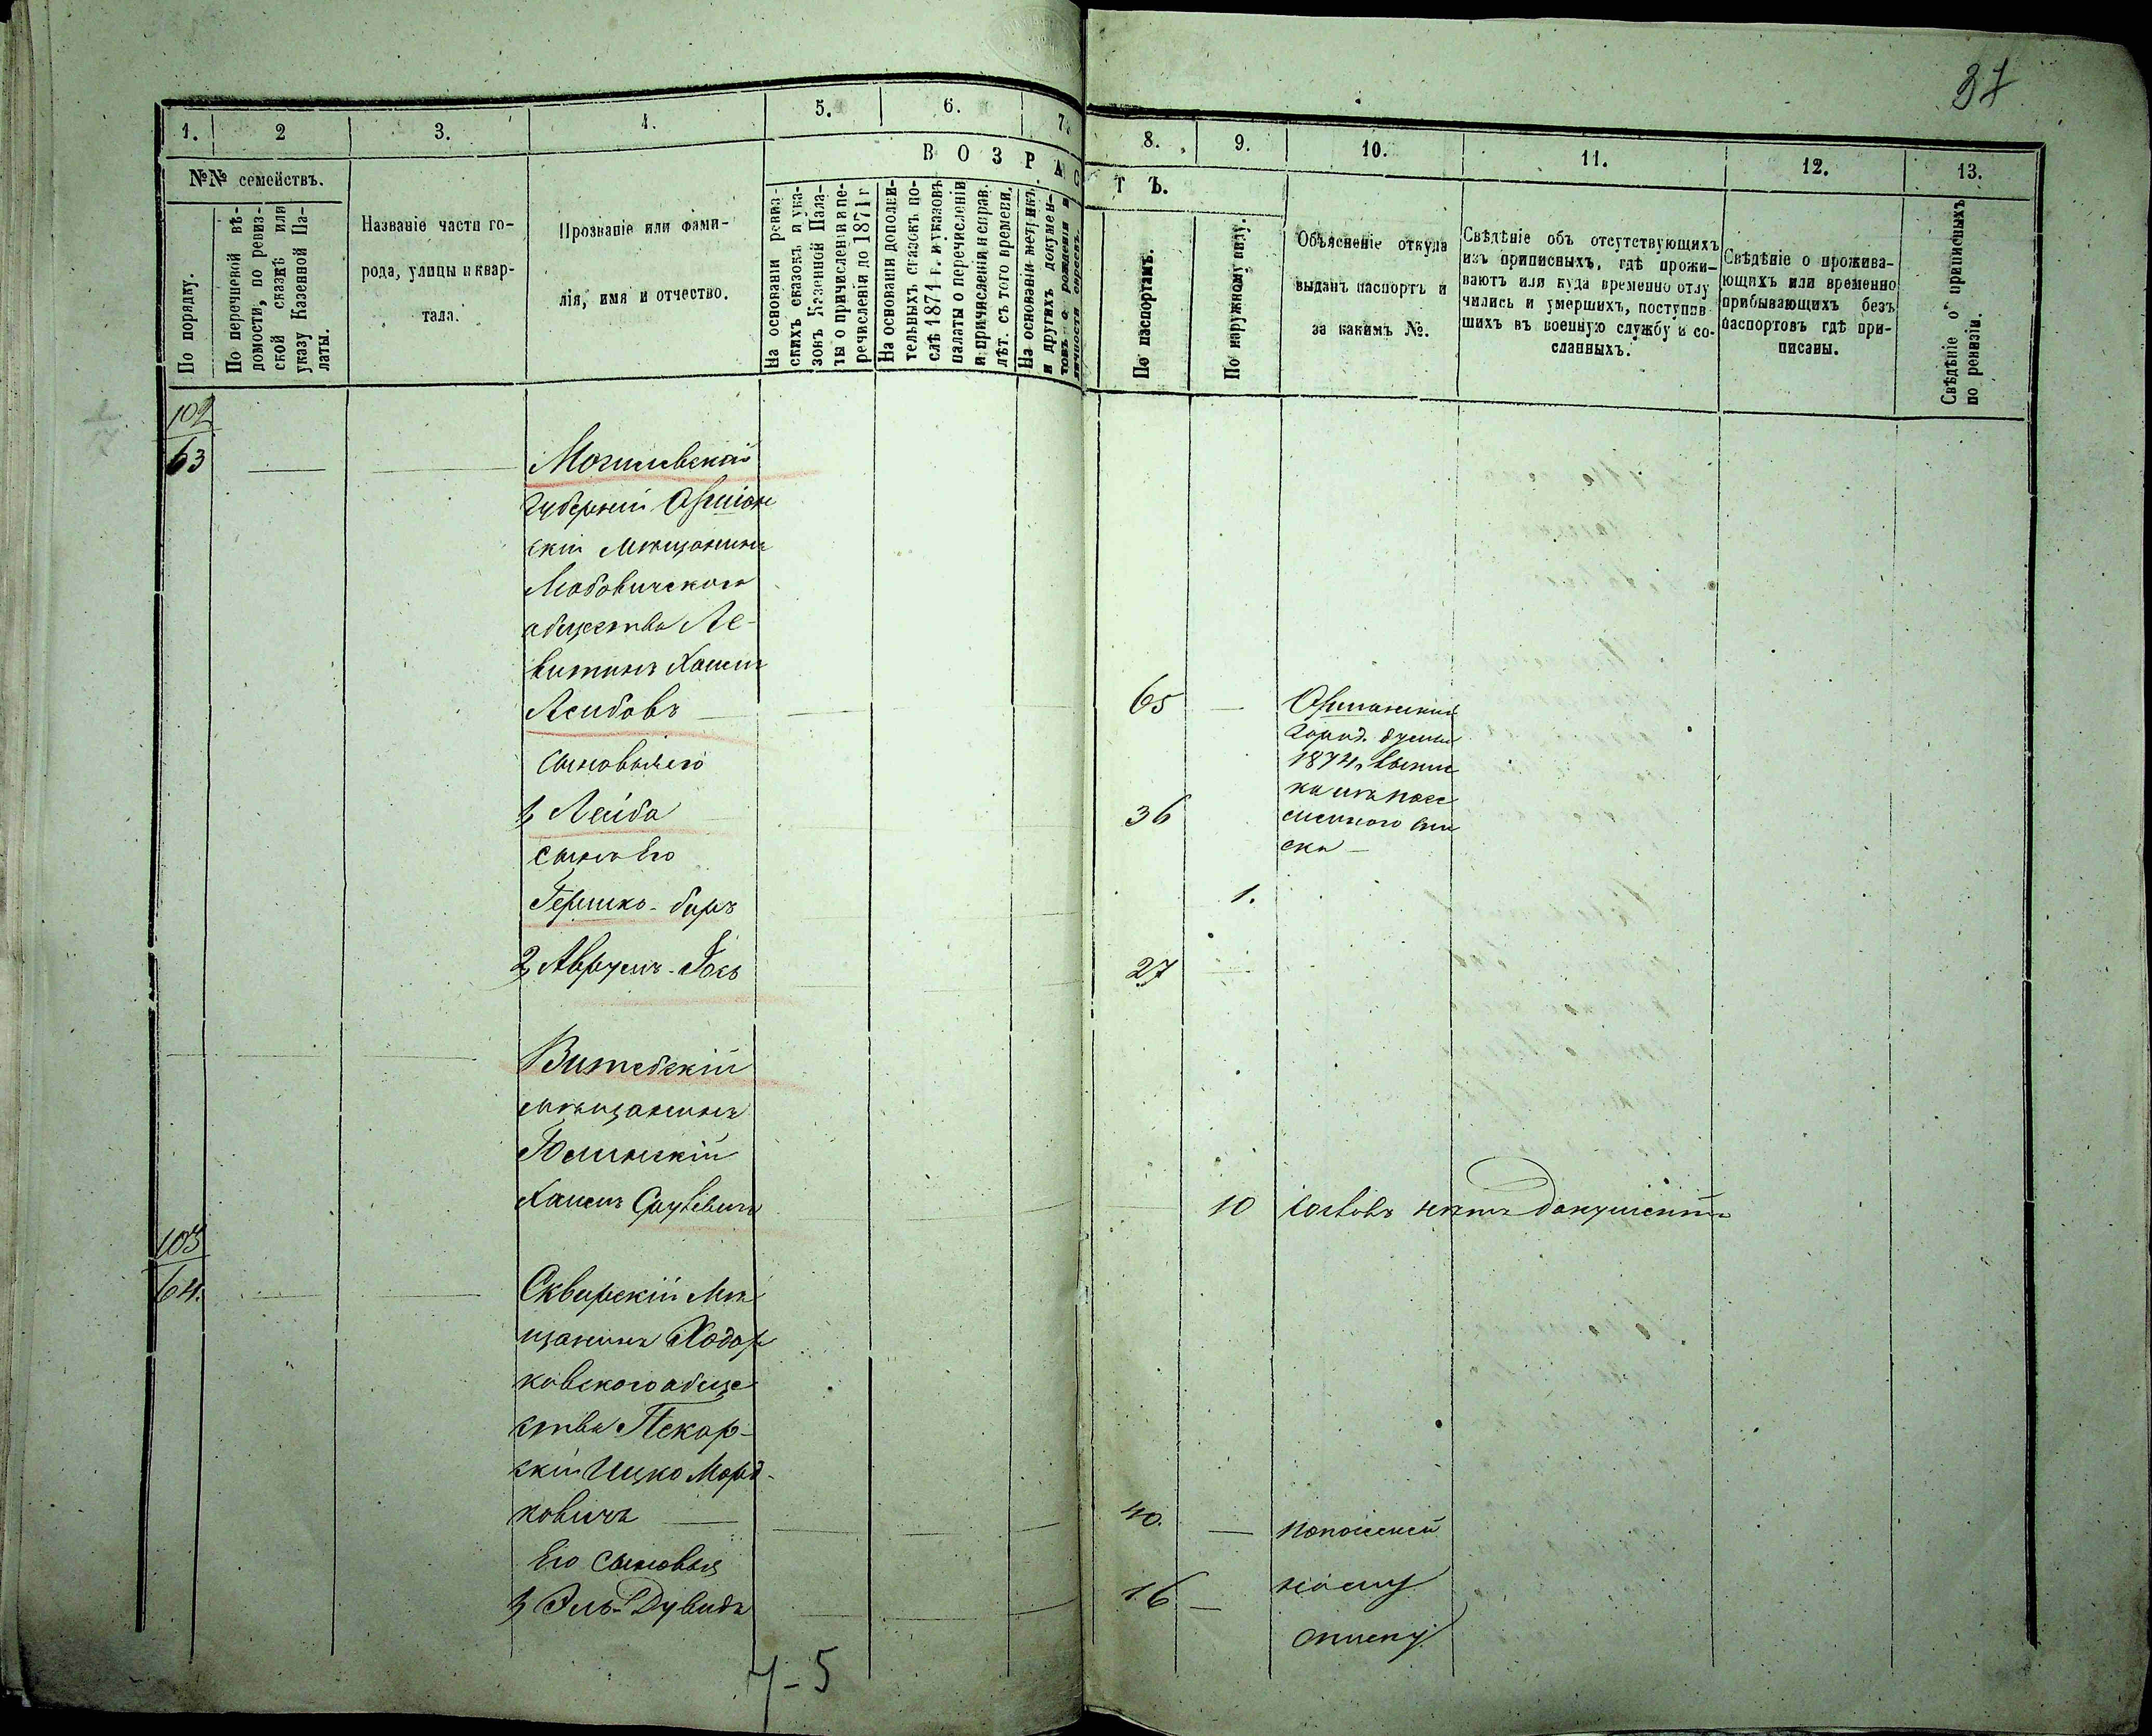 37
1. 2 3. 4. 5. 6. 7. 8. 9. 10. 11. 12. 13.
№№ семействъ.
По порядку.
По перечневой вѣ-
домости, по ревиз-
ской сказкѣ или
указу Казенной Па-
латы.
Названіе части го-
рода, улицы и квар-
тала.
Прозваніе или фами-
лія, имя и отчество.
ВОЗРАСТЪ.
На основаніи ревиз-
скихъ сказокъ и ука-
зовъ Казенной Пала-
ты о причисленіи и пе-
речисленіи до 1871 г
На основаніи дополни-
тельныхъ сказокъ по-
слѣ 1871 г. и указовъ
палаты о перечисленіи
и причисленіи исправ.
лѣт. съ того времени.
На основаніи метрикъ
и другихъ докумен-
товъ о рожденіи и
По паспортамъ.
По наружному виду.
Объясненіе откуда
выданъ паспортъ и
за какимъ №.
Свѣдѣніе объ отсутствующихъ
изъ приписныхъ, гдѣ прожи-
ваютъ или куда временно отлу
чились и умершихъ, поступив-
шихъ въ военную службу и со-
сланныхъ.
Свѣдѣніе о прожива-
ющихъ или временно
прибывающихъ безъ
паспортовъ гдѣ при-
писаны.
Свѣдѣніе о приписныхъ
по ревизіи.
102
63
Могилевской
Губерніи Оршан
скій Мѣщанинъ
общества Ле-
витинъ Хаимъ
Лейбовъ — 65 —
Оршанской
Город. думы
1874
сыновья его
1, Лейба 36
сынъ его
Гершко-беръ 1.
2, Аврумъ-Іосъ 27
Витебскій
мѣщанинъ
Хаимъ 10
нѣтъ документа
103
64.
Сквирскій Мѣ
щанинъ Ходор
ковского обще
ства Пекар-
скій Ицко Морд-
ковичъ — 40. —
Его сыновья
1, Эль-Дувидъ 16 —
списку
4-5